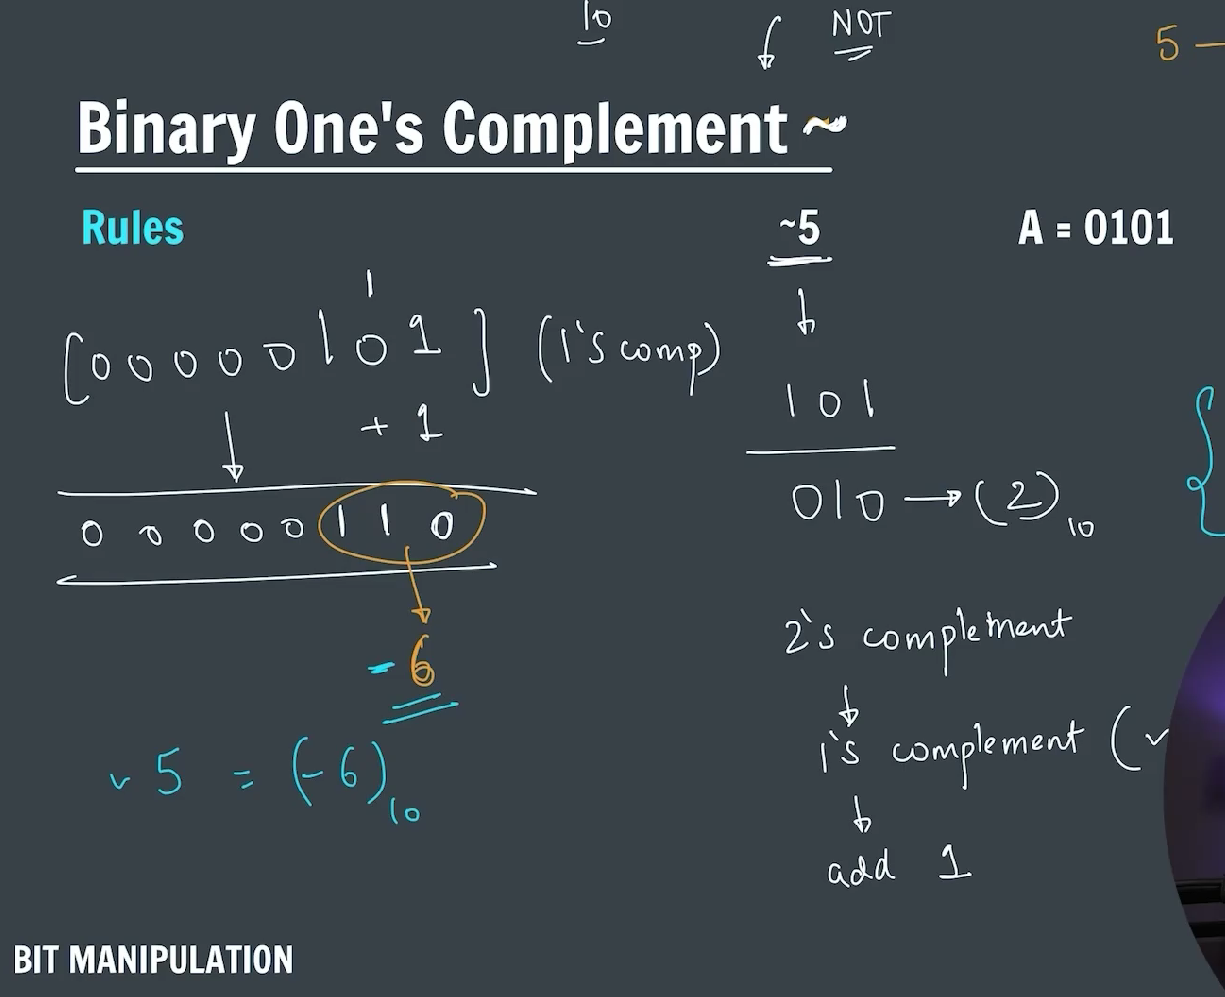 10
NOT
5 –
Binary One's Complement ~
Rules
~5
A = 0101
1
[00000101] (1's comp)
+ 1
101
00000110
010 → (2)10
2's complement
- 6
1's complement (
~5 = (-6)10
add 1
BIT MANIPULATION